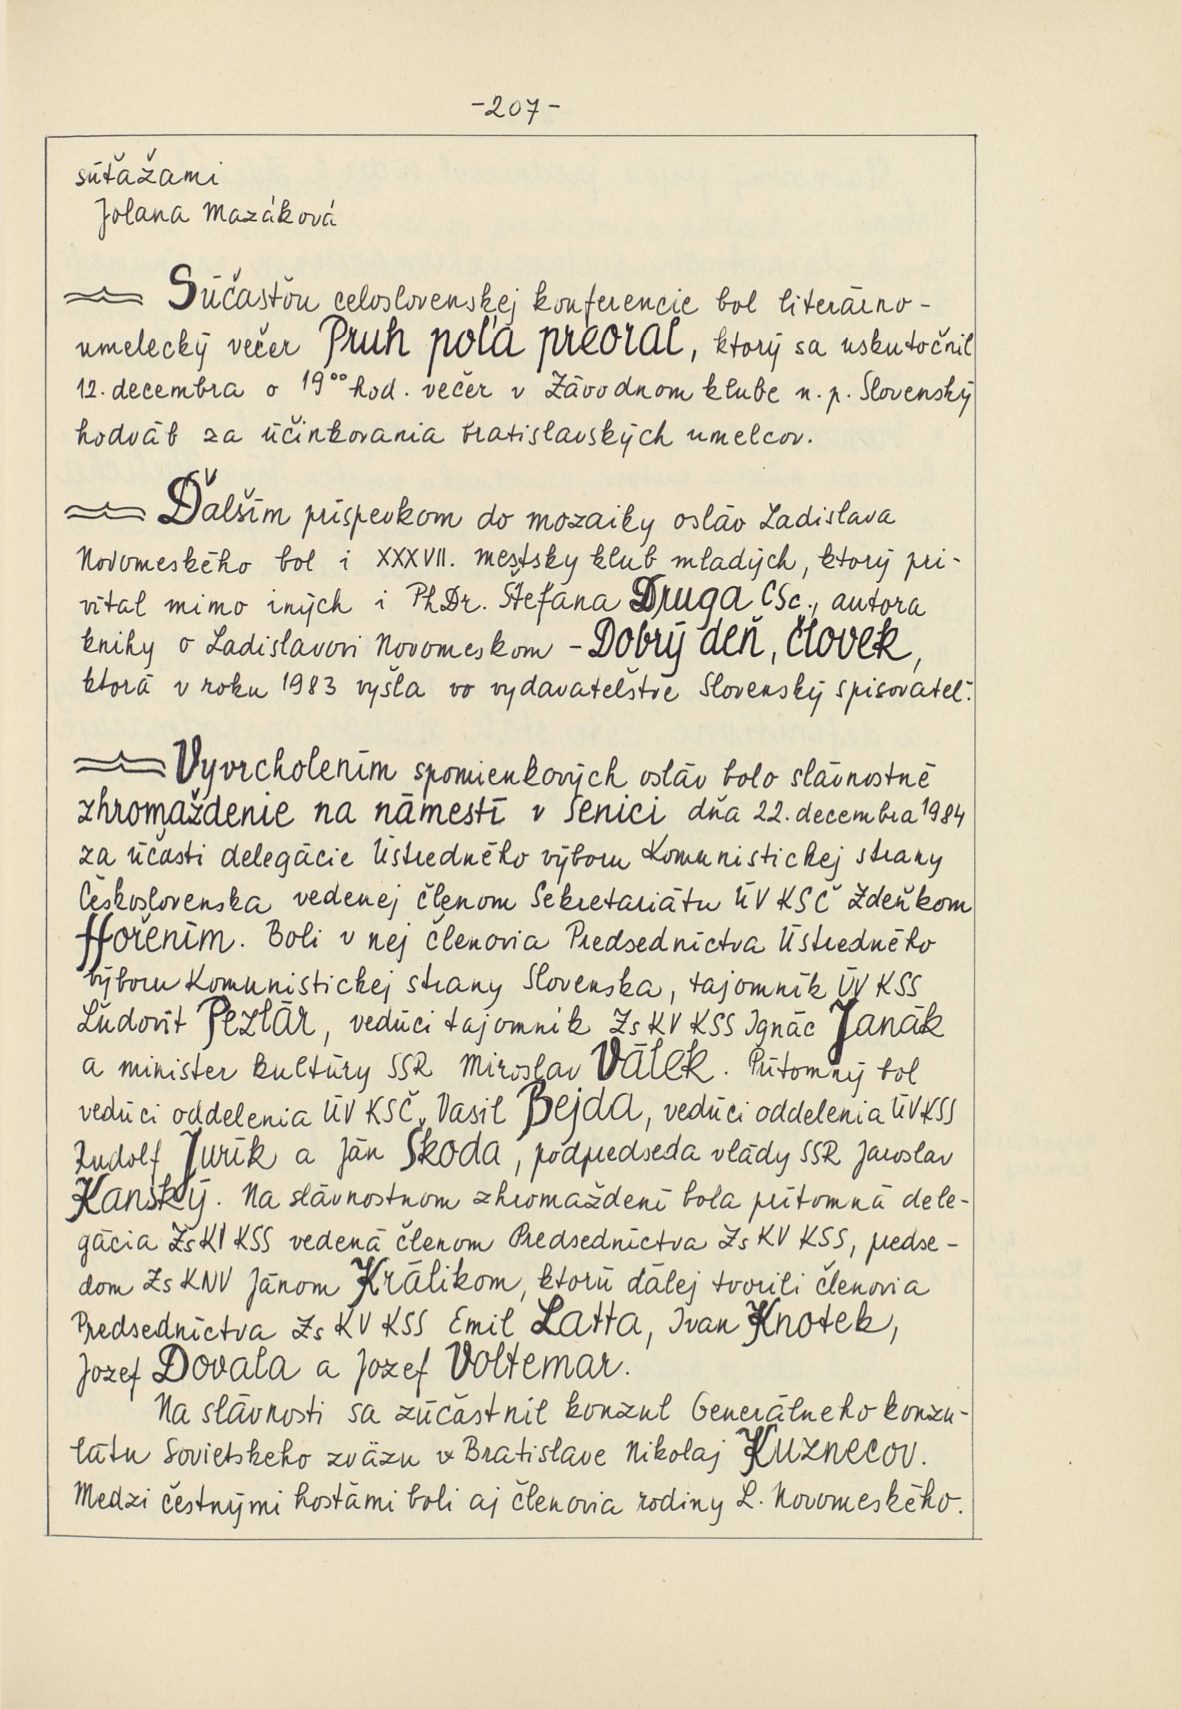 -207-
súťažami
Jolana Mazáková
Súčasťou celoslovenskej konferencie bol literárno-
umelecký večer Pruh poľa preoral, ktorý sa uskutočnil
12. decembra o 19⁰⁰ hod. večer v Závodnom klube n.p. Slovenský
hodváb za účinkovania bratislavských umelcov.
Ďalším príspevkom do mozaiky osláv Ladislava
Novomeského bol i XXXVII. mestský klub mladých, ktorý pri-
vítal mimo iných i PhDr. Štefana Druga CSc., autora
knihy o Ladislavovi Novomeskom - Dobrý deň, človek,
ktorá v roku 1983 vyšla vo vydavateľstve Slovenský spisovateľ.
Vyvrcholením spomienkových osláv bolo slávnostné
zhromaždenie na námestí v Senici dňa 22. decembra 1984
za účasti delegácie Ústredného výboru Komunistickej strany
Československa vedenej členom Sekretariátu ÚV KSČ Zdeňkom
Hořením. Boli v nej členovia Predsedníctva Ústredného
výboru Komunistickej strany Slovenska, tajomník ÚV KSS
Ľudovít Pezlár, vedúci tajomník Zs KV KSS Ignác Janák
a minister kultúry SSR Miroslav Válek. Prítomný bol
vedúci oddelenia ÚV KSČ Vasil Bejda, vedúci oddelenia ÚV KSS
Rudolf Jurík a Ján Škoda, podpredseda vlády SSR Jaroslav
Kanský. Na slávnostnom zhromaždení bola prítomná dele-
gácia Zs KV KSS vedená členom Predsedníctva Zs KV KSS, predse-
dom Zs KNV Jánom Králikom, ktorú ďalej tvorili členovia
Predsedníctva Zs KV KSS Emil Latta, Ivan Knotek,
Jozef Dovala a Jozef Voltemar.
Na slávnosti sa zúčastnil konzul Generálneho konzu-
látu Sovietskeho zväzu v Bratislave Nikolaj Kuznecov.
Medzi čestnými hosťami boli aj členovia rodiny L. Novomeského.